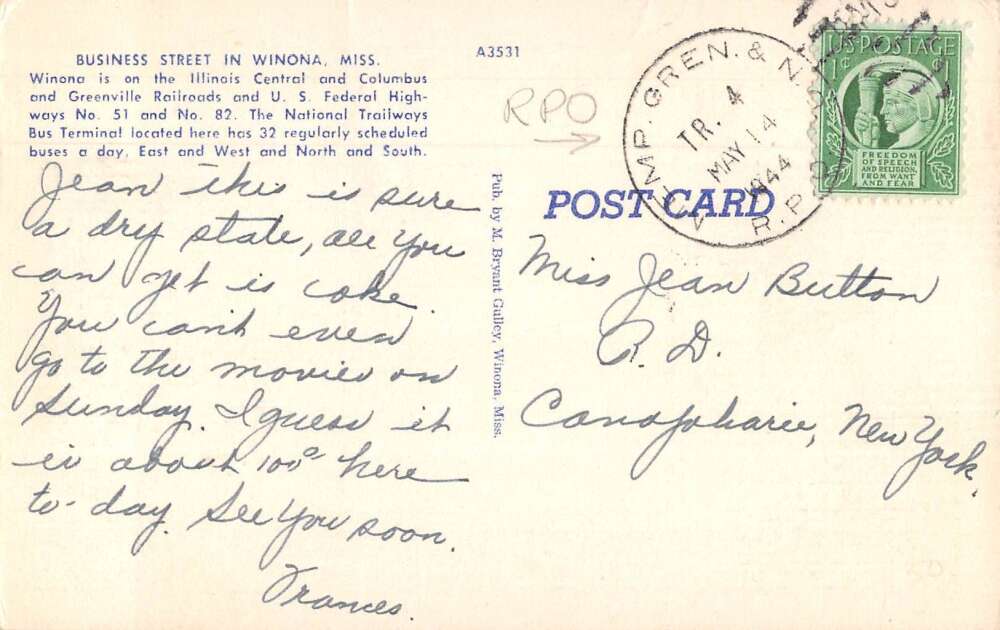 BUSINESS STREET IN WINONA, MISS.
Winona is on the Illinois Central and Columbus
and Greenville Railroads and U. S. Federal High-
ways No. 51 and No. 82. The National Trailways
Bus Terminal located here has 32 regularly scheduled
buses a day, East and West and North and South.
A3531
RPO
MEMP. GREN. & N.O.
TR. 4
MAY 14
1944
R.P.O.
U.S. POSTAGE
1¢ 1¢
FREEDOM
OF SPEECH
AND RELIGION,
FROM WANT
AND FEAR
POST CARD
Jean this is sure
a dry state, all you
can get is coke.
You can't even
go to the movies on
Sunday. I guess it
is about 100° here
to-day. See You soon.
Frances.
Pub. by M. Bryant Gulley, Winona, Miss.
Miss Jean Button
R. D.
Canajoharie, New York.